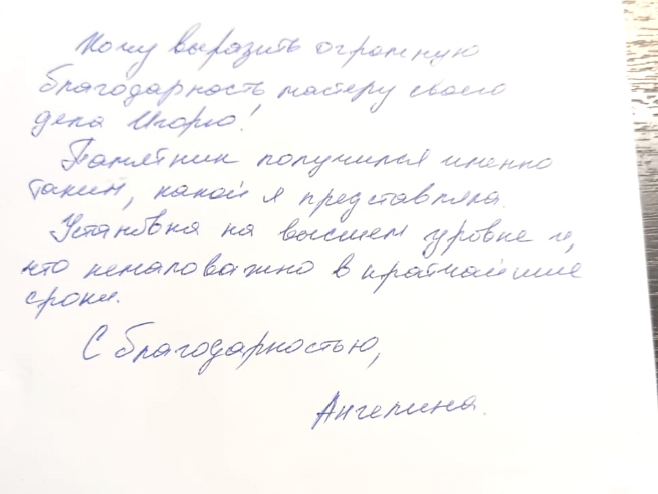 Хочу выразить огромную
благодарность, мастеру своего
дела Игорю!
Памятник получился именно
таким, какой я представляла.
Установка на высшем уровне и,
что немаловажно в кратчайшие
сроки.
С благодарностью,
Ангелина.